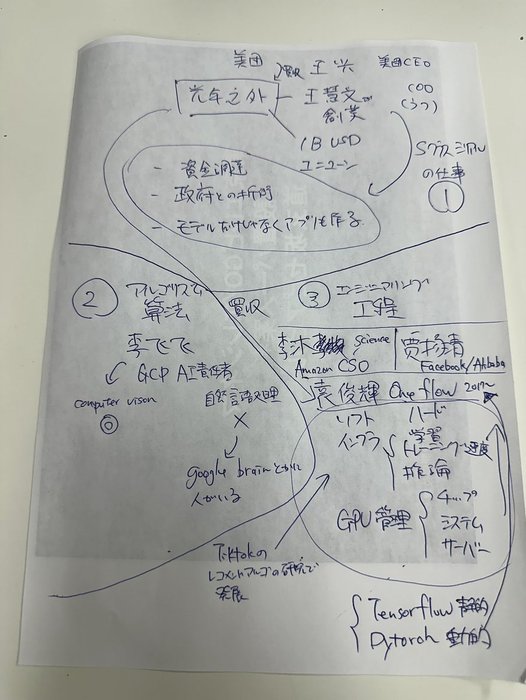 美団
買収 王兴 美団CEO
光年之外 - 王慧文が
創業
COO
1B USD
ユニコーン
の仕事
①
- 資金調達
- 政府との折衝
- モデルだけじゃなくアプリも作る
②
アルゴリズム
算法
買収
李飞飞
GCP AI責任者
computer vison
◎
自然言語処理
×
google brainとかに
人がいる
③
エンジニアリング
工程
李沐 Science
Amazon CSO
贾扬清
Facebook/Alibaba
袁俊輝 One flow 2017~
ソフト ハード
インフラ
学習
トレーニング速度
推論
GPU管理
チップ
システム
サーバー
Tiktokの
レコメンドアルゴの研究で
発展
Tensorflow 静的
Pytorch 動的